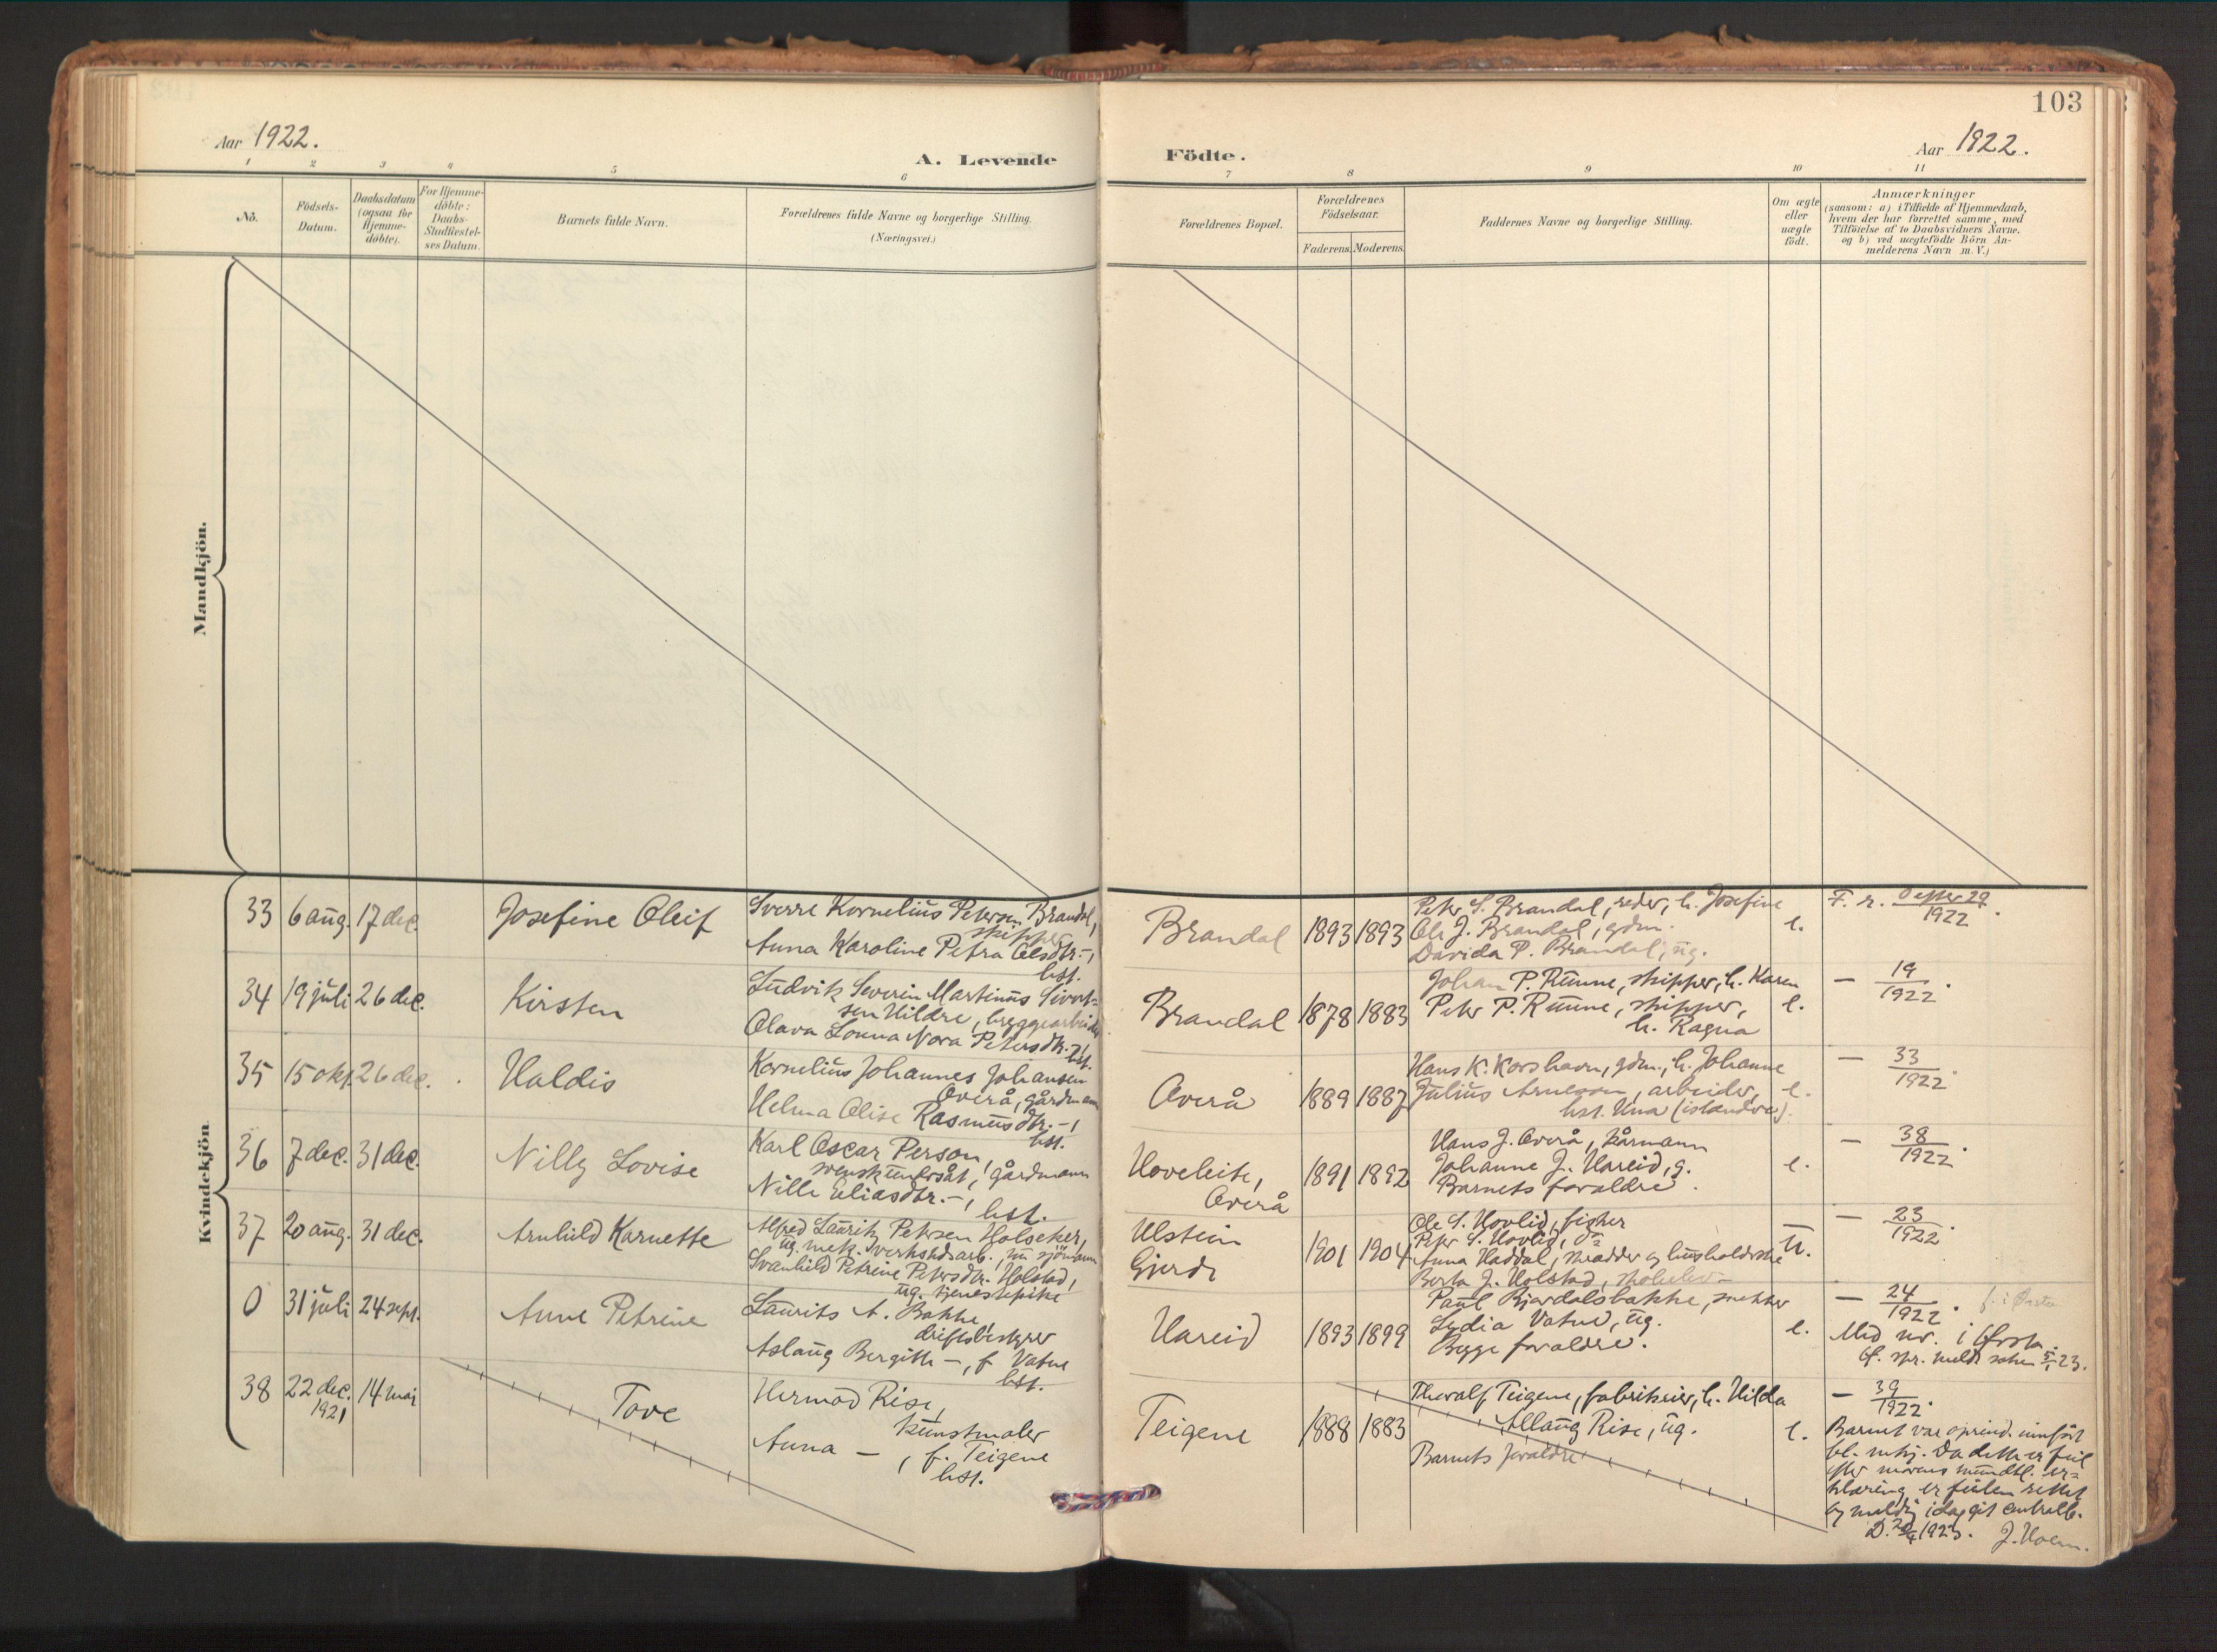 103
Aar 1922.
A. Levende
Födte.
Aar 1922.
1 2 3 4 5 6 7 8 9 10 11
No.
Födsels-Datum.
Daabsdatum (ogsaa for Hjemme-döbte).
For Hjemme-döbte: Daabs-Stadfæstel-ses Datum.
Barnets fulde Navn.
Forældrenes fulde Navne og borgerlige Stilling. (Næringsvei.)
Forældrenes Bopæl.
Forældrenes Födselsaar.
Faderens. Moderens.
Faddernes Navne og borgerlige Stilling.
Om ægte eller uægte födt.
Anmærkninger
(saasom: a) i Tilfælde af Hjemmedaab,
hvem der har forrettet samme, med
Tilföielse af to Daabsvidners Navne.
og b) ved uægtefödte Börn An-
melderens Navn m. V.)
Mandkjön.
Kvindekjön.
33 6 aug. 17 dec. Josefine Oleif
Sverre Kornelius Petersen Brandal,
skipper
Anna Karoline Petra Olsdtr. -,
hst.
Brandal 1893 1893
Peter S. Brandal, reder, h. Josefine
Ole J. Brandal, gdm.
Davida P. Brandal, ug.
e.
F. r. 0 efter 29/1922.
34 19 juli 26 dec. Kirsten
Ludvik Severin Martinus Sivert-
sen Hildre, bryggearbeider
Olava Lovna Nora Petersdtr. -,
hst.
Brandal 1878 1883
Johan P. Runne, skipper, h. Karen
Peter P. Runne, skipper,
h. Ragna
e.
— 19/1922.
35 15 okt. 26 dec. Haldis
Kornelius Johannes Johansen
Overå, gårdmann
Helma Olise Rasmusdtr. -,
hst.
Overå 1889 1887
Hans K. Korshavn, gdm., h. Johanne
Julius Arnesson, arbeider,
hst. Una (islandsk).
e.
— 33/1922.
36 7 dec. 31 dec. Nilly Lovise
Karl Oscar Person,
svensk undersåt, gårdmann
Nille Eliasdtr. -,
hst.
Hoveleite,
Overå
1891 1892
Hans J. Overå, kårmann
Johanne J. Hareid, g.
Barnets foraldre.
e.
— 38/1922.
37 20 aug. 31 dec. Arnhild Karnette
Alfred Lauritz Petersen Holseker,
ug. mek. verkstedsarb., nu sjömann
Svanhild Petrine Petersdtr. Holstad,
ug. tjenestepike
Ulstein
Gjerde
1901 1904
Ole S. Hovlid, fisker
Peter S. Hovlid, do
Anna Haddal, skredder og husholderske
Berta J. Holstad, skoleelev -
U.
— 23/1922.
0 31 juli 24 sept. Anne Petrine
Laurits A. Bakke,
driftsbestyrer
Aslaug Bergitte -, f. Vatne
hst.
Hareid 1893 1899
Paul Bjørdalsbakke, snekker
Lydia Vatne, ug.
Begge foraldre.
e.
— 24/1922. f. i Ørsta
Med nr. i Ørsta.
38 22 dec. 1921 14 mai Tove
Hermod Rise,
kunstmaler
Anna —, f. Teigene
hst.
Teigene 1888 1883
Thoralf Teigene, fabrikeier, h. Hilda
Allaug Rise, ug.
Barnets foraldre
e.
— 39/1922.
Barnet var oprind. innført
bl. mkj. Da dette er feil
efter morens mundtl. er-
klæring, er feilen rettet
og meldg idag git centralb.
1923. J. Hoem.